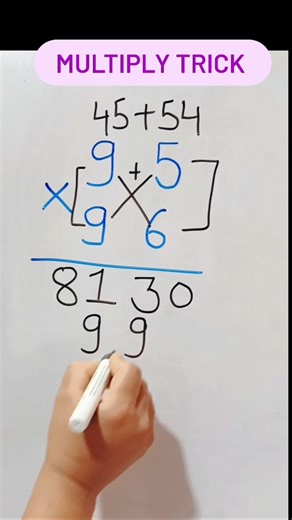 MULTIPLY TRICK
45+54
9 + 5
× [ × ]
9 6
8130
99